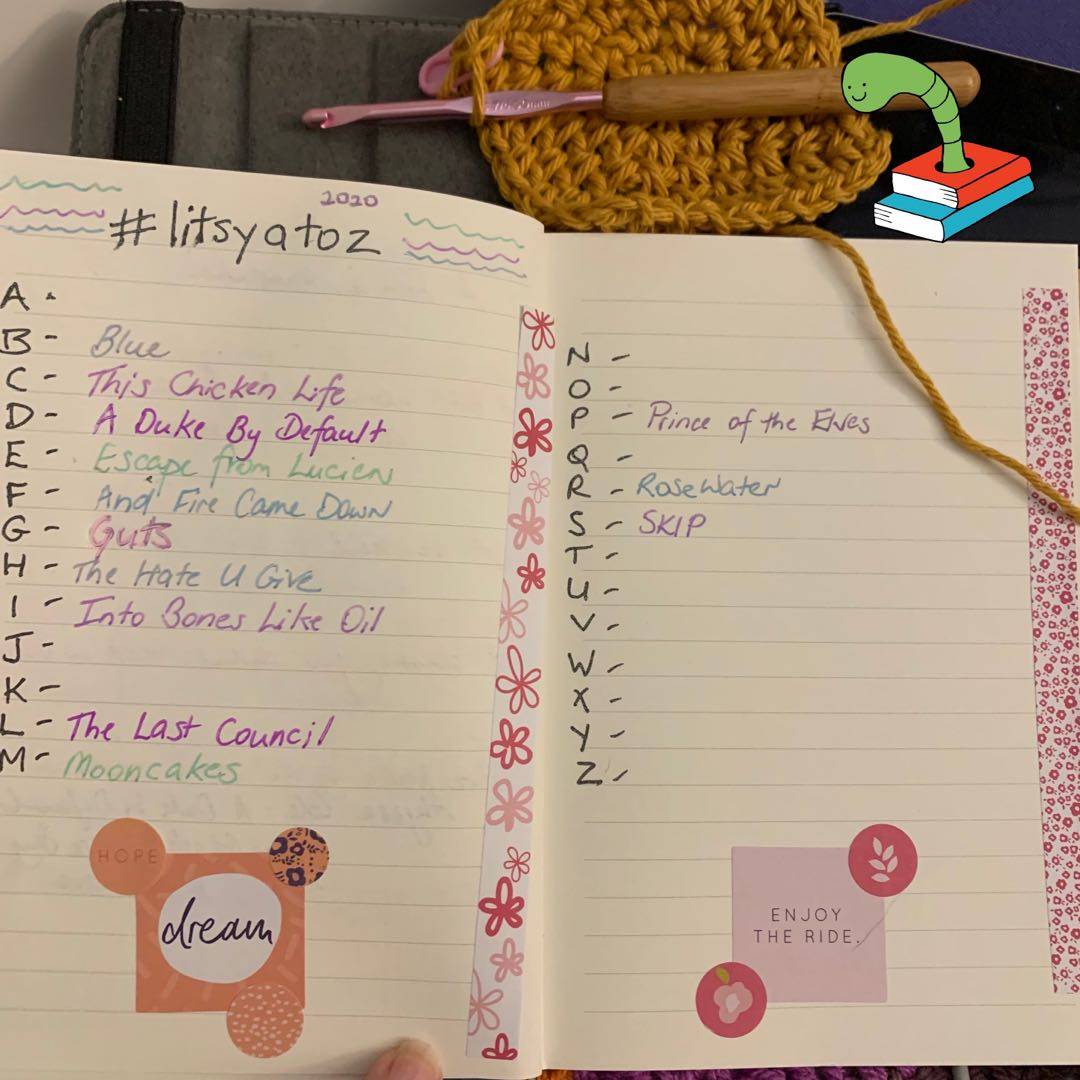 2020
#litsyatoz
A -
B - Blue
C - This Chicken Life
D - A Duke By Default
E - Escape from Lucien
F - And Fire Came Down
G - Guts
H - The Hate U Give
I - Into Bones Like Oil
J -
K -
L - The Last Council
M - Mooncakes
HOPE
dream
N -
O -
P - Prince of the Elves
Q -
R - Rosewater
S - SKIP
T -
U -
V -
W -
X -
Y -
Z -
ENJOY
THE RIDE.